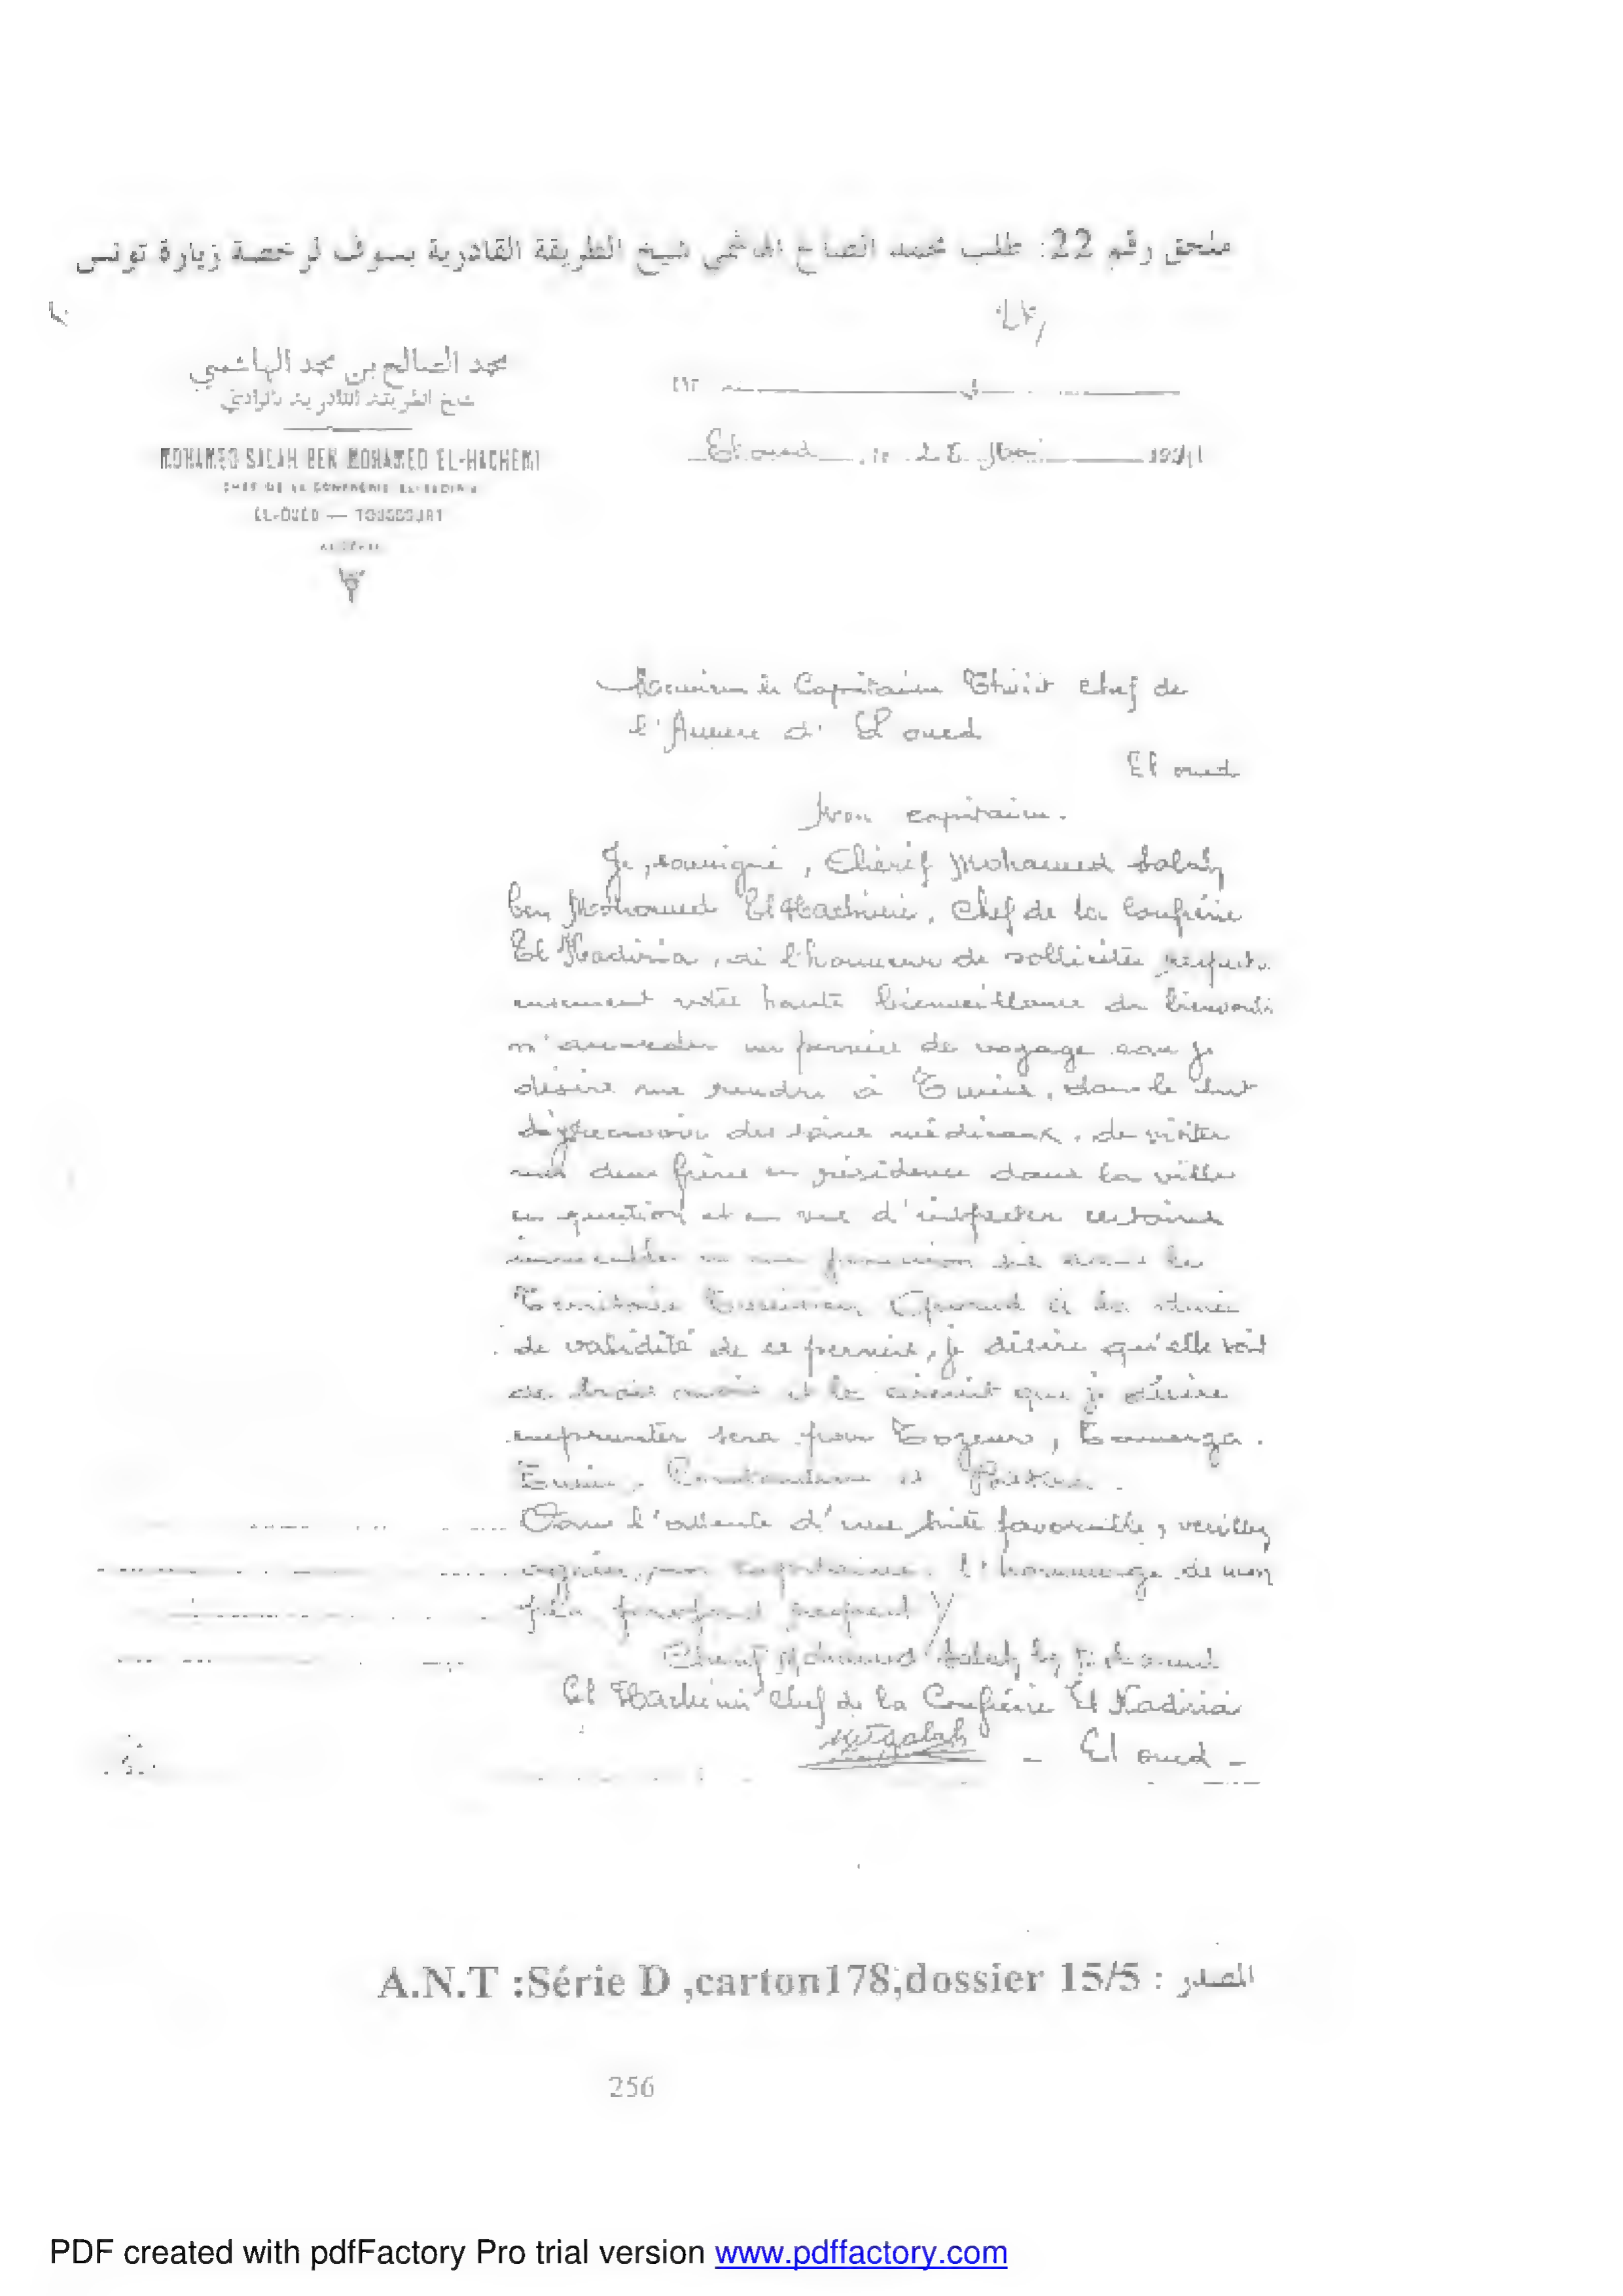 ملحق رقم 22: طلب محمد الصالح الهاشمي شيخ الطريقة القادرية بسوف لرخصة زيارة تونس
محمد الصالح بن محمد الهاشمي
شيخ الطريقة القادرية بالوادي
MOHAMED SALAH BEN MOHAMED EL-HACHEMI
CHEF DE LA CONFRÉRIE EL-KADIRIA
EL-OUED — TOUGGOURT
El oued, le 193
Monsieur le Capitaine chef de
l'Annexe d'El oued
El oued
Mon capitaine.
Je, soussigné, Chérif Mohamed Salah
ben Mohamed El Hachimi, Chef de la Confrérie
El Kadiria, ai l'honneur de solliciter respectu
eusement votre haute bienveillance de bien vouloir
m'accorder un permis de voyage car je
désire me rendre à Tunis, dans le but
des soins médicaux, de visiter
mes deux frères en résidence dans la ville
en question et en vue d'inspecter certains
immeubles en ma possession
Territoire Tunisien Quand à la durée
de validité de ce permis, je désire qu'elle soit
de trois mois et le circuit que je désire
emprunter sera pour Tozeur, Tamerza.
Tunis, Constantine et
Dans l'attente d'une suite favorable, veuillez
agréer, mon capitaine, l'hommage de mon
plus profond respect
Chérif Mohamed Salah ben Mohamed
El Hachimi Chef de la Confrérie El Kadiria
- El oued -
المصدر : A.N.T :Série D ,carton178;dossier 15/5
256
PDF created with pdfFactory Pro trial version www.pdffactory.com